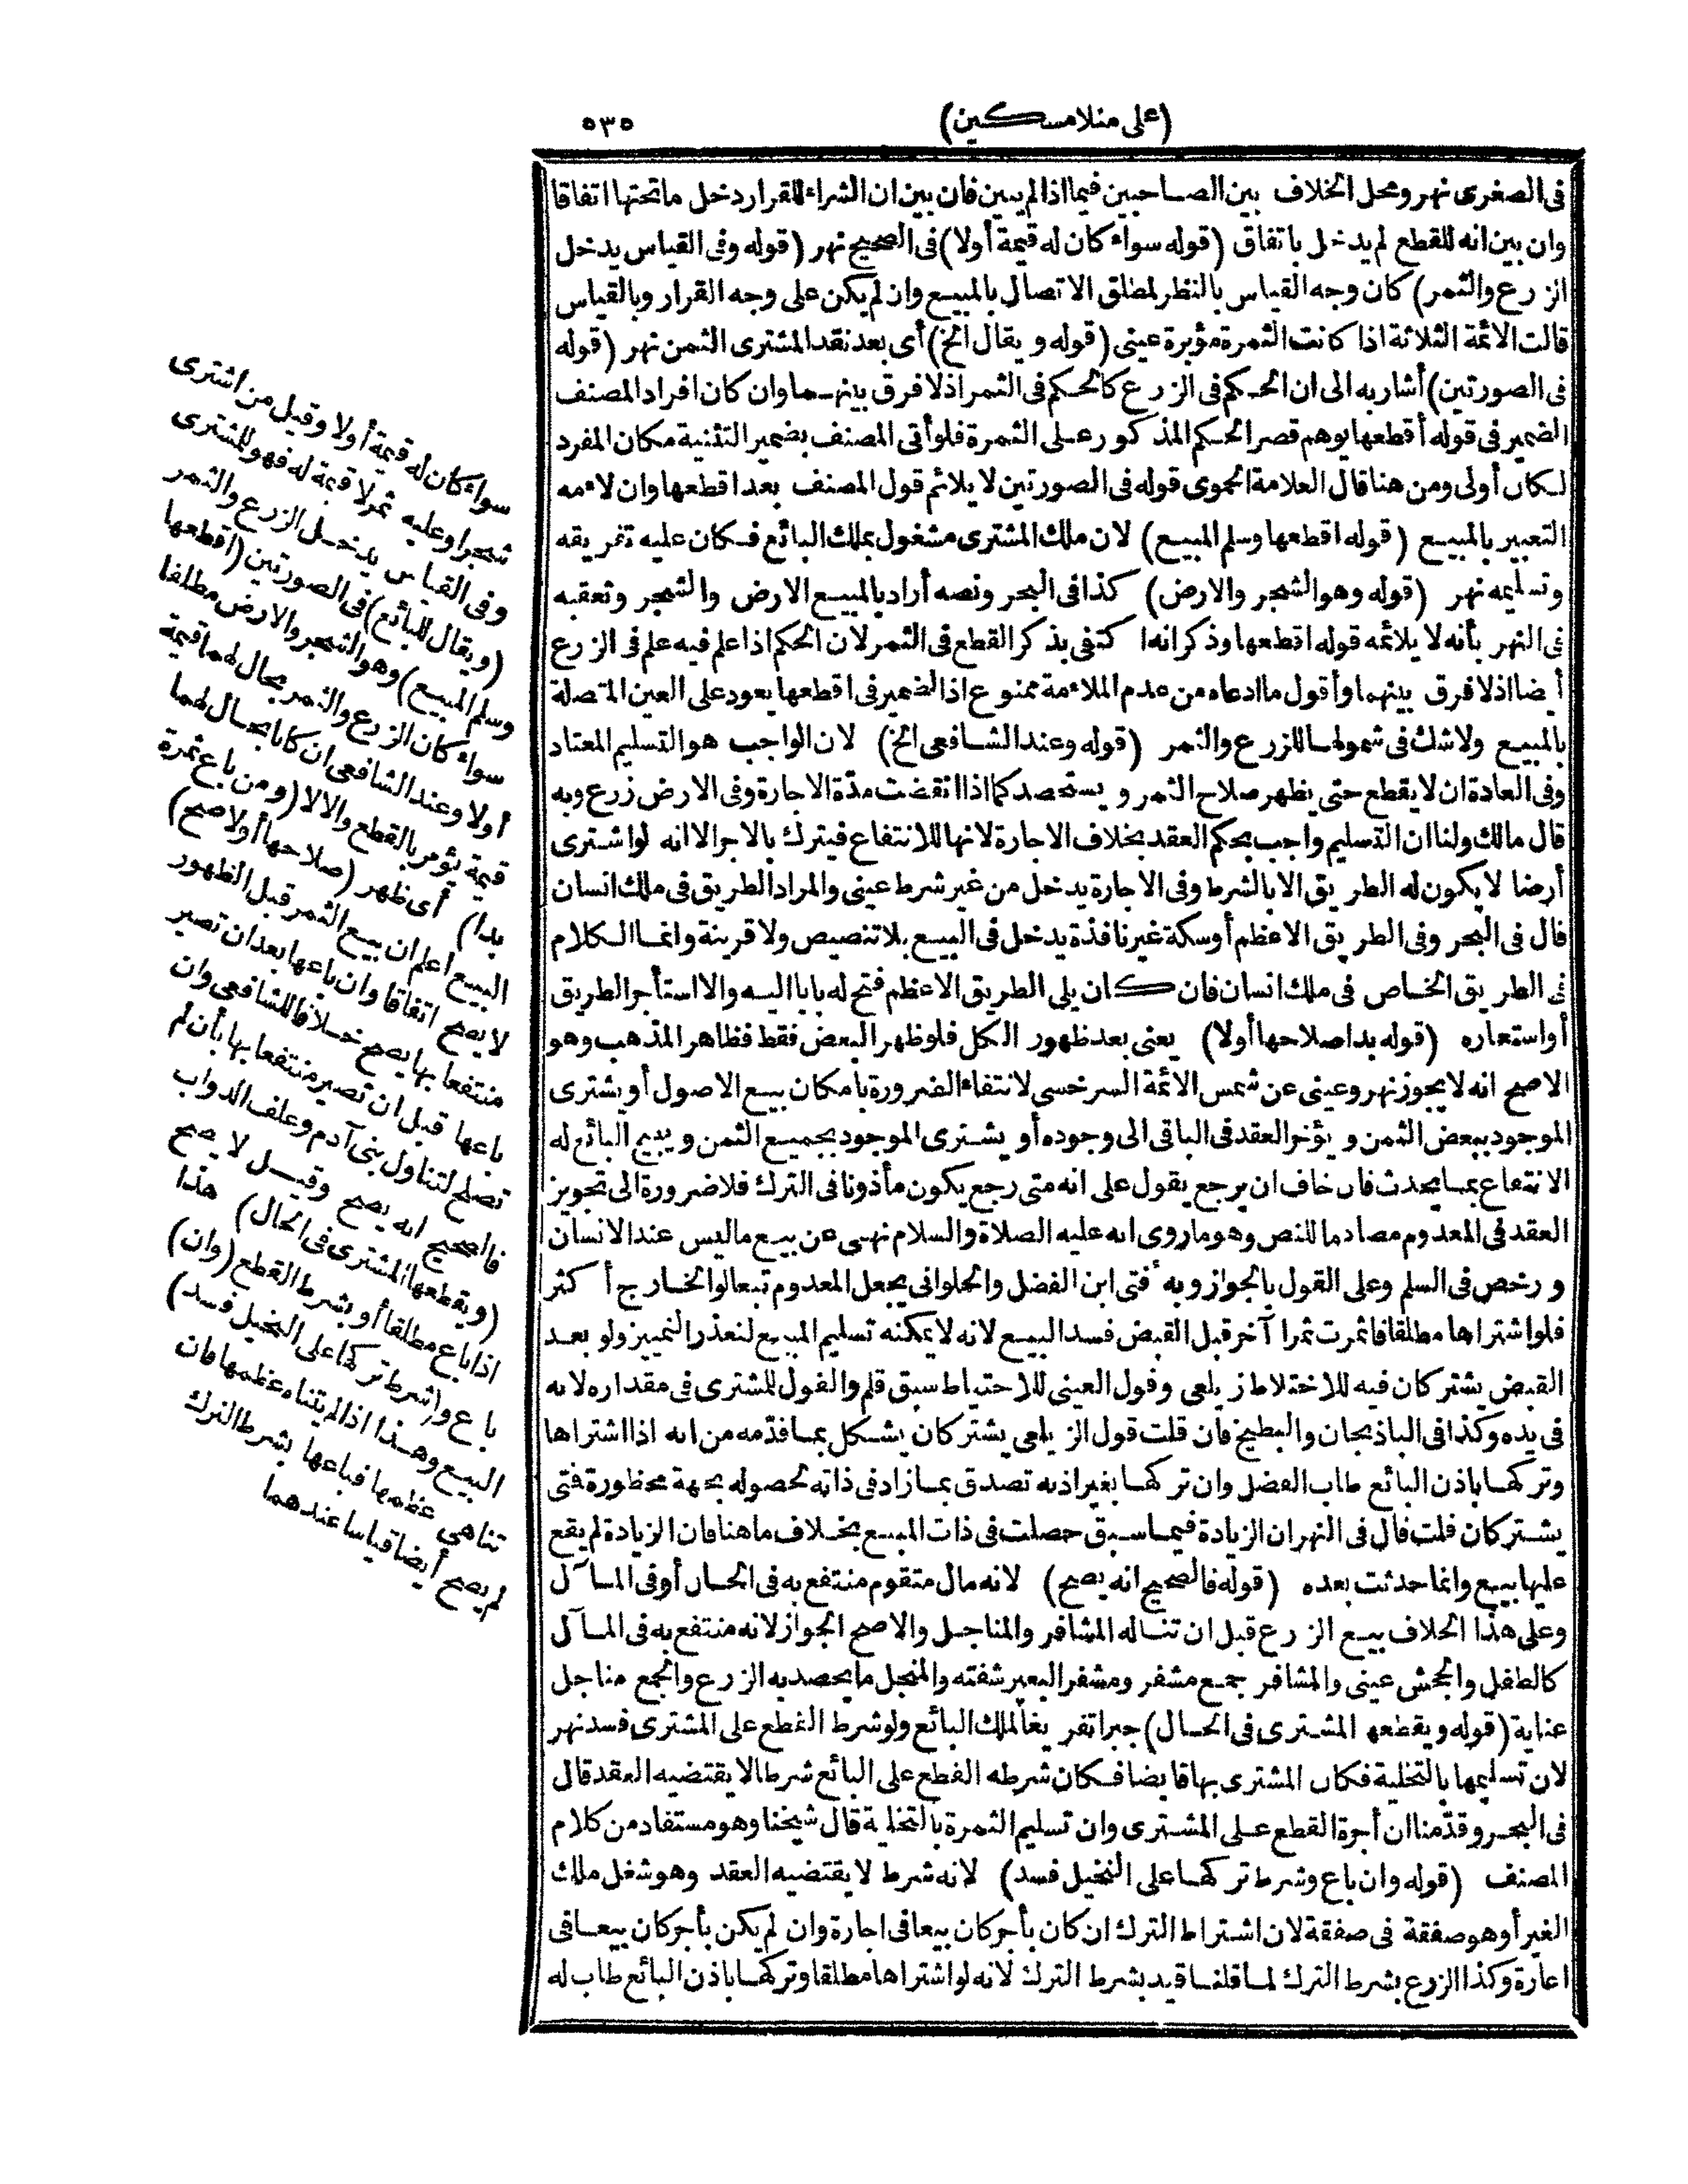 (على منلا مسكين) ٥٣٥
فى الصغرى نهر ومحل الخلاف بين الصاحبين فيما اذا لم يبين فان بين ان الشراء للقرار دخل ما تحتها اتفاقا
وان بين انه للقطع لم يدخل باتفاق (قوله سواء كان له قيمة أولا) فى الصحيح نهر (قوله وفى القياس يدخل
الزرع والثمر) كان وجه القياس بالنظر لمطلق الاتصال بالمبيع وان لم يكن على وجه القرار وبالقياس
قالت الائمة الثلاثة اذا كانت الثمرة مؤبرة عينى (قوله ويقال الخ) أى بعد نقد المشترى الثمن نهر (قوله
فى الصورتين) أشار به الى ان الحكم فى الزرع كالحكم فى الثمر اذ لا فرق بينهما وان كان افراد المصنف
الضمير فى قوله أقطعها يوهم قصر الحكم المذكور على الثمرة فلو أتى المصنف بضمير التثنية مكان المفرد
لكان أولى ومن هنا قال العلامة الحموى قوله فى الصورتين لا يلائم قول المصنف بعد اقطعها وان لاءمه
التعبير بالمبيع (قوله اقطعها وسلم المبيع) لان ملك المشترى مشغول بملك البائع فكان عليه تفريقه
وتسليمه نهر (قوله وهو الشجر والارض) كذا فى البحر ونصه أراد بالمبيع الارض والشجر وتعقبه
فى النهر بأنه لا يلائمه قوله اقطعها وذكر انه اكتفى بذكر القطع فى الثمر لان الحكم اذا علم فيه علم فى الزرع
أيضا اذ لا فرق بينهما وأقول ما ادعاه من عدم الملاءمة ممنوع اذ الضمير فى اقطعها يعود على العين المتصلة
بالمبيع ولا شك فى شمولها للزرع والثمر (قوله وعند الشافعى الخ) لان الواجب هو التسليم المعتاد
وفى العادة ان لا يقطع حتى يظهر صلاح الثمر ويستحصد كما اذا انقضت مدّة الاجارة وفى الارض زرع وبه
قال مالك ولنا ان التسليم واجب بحكم العقد بخلاف الاجارة لانها للانتفاع فيترك بالاجر الا انه لو اشترى
أرضا لا يكون له الطريق الا بالشرط وفى الاجارة يدخل من غير شرط عينى والمراد الطريق فى ملك انسان
قال فى البحر وفى الطريق الاعظم أو سكة غير نافذة يدخل فى البيع بلا تنصيص ولا قرينة وانما الكلام
فى الطريق الخاص فى ملك انسان فان كان يلى الطريق الاعظم فتح له بابا اليه والا استأجر الطريق
أو استعاره (قوله بدا صلاحها أولا) يعنى بعد ظهور الكل فلو ظهر البعض فقط فظاهر المذهب وهو
الاصح انه لا يجوز نهر وعينى عن شمس الائمة السرخسى لانتفاء الضرورة بامكان بيع الاصول أو يشترى
الموجود ببعض الثمن ويؤخر العقد فى الباقى الى وجوده أو يشترى الموجود بجميع الثمن ويبيح البائع له
الانتفاع بما يحدث فان خاف ان يرجع يقول على انه متى رجع يكون مأذونا فى الترك فلا ضرورة الى تجويز
العقد فى المعدوم مصادما للنص وهو ما روى انه عليه الصلاة والسلام نهى عن بيع ما ليس عند الانسان
ورخص فى السلم وعلى القول بالجواز وبه أفتى ابن الفضل والحلوانى يجعل المعدوم تبعا لو الخارج أكثر
فلو اشتراها مطلقا فاثمرت ثمرا آخر قبل القبض فسد البيع لانه لا يمكنه تسليم المبيع لتعذر التمييز ولو بعد
القبض يشتركان فيه للاختلاط زيلعى وقول العينى للاحتياط سبق قلم والقول للمشترى فى مقداره لانه
فى يده وكذا فى الباذنجان والبطيخ فان قلت قول الزيلعى يشتركان يشكل بما قدّمه من انه اذا اشتراها
وتركها باذن البائع طاب الفضل وان تركها بغير اذنه تصدق بما زاد فى ذاته لحصوله بجهة محظورة فتى
يشتركان قلت قال فى النهر ان الزيادة فيما سبق حصلت فى ذات المبيع بخلاف ما هنا فان الزيادة لم يقع
عليها بيع وانما حدثت بعده (قوله فالصحيح انه يصح) لانه مال متقوم منتفع به فى الحال أو فى المآل
وعلى هذا الخلاف بيع الزرع قبل ان تناله المشافر والمناجل والاصح الجواز لانه منتفع به فى المآل
كالطفل والجحش عينى والمشافر جمع مشفر ومشفر البعير شفته والمنجل ما يحصد به الزرع والجمع مناجل
عناية (قوله ويقطعها المشترى فى الحال) جبرا تفريغا لملك البائع ولو شرط القطع على المشترى فسد نهر
لان تسليمها بالتخلية فكان المشترى بها قابضا فكان شرطه القطع على البائع شرطا لا يقتضيه العقد قال
فى البحر وقدّمنا ان أجرة القطع على المشترى وان تسليم الثمرة بالتخلية قال شيخنا وهو مستفاد من كلام
المصنف (قوله وان باع وشرط تركها على النخيل فسد) لانه شرط لا يقتضيه العقد وهو شغل ملك
الغير أو هو صفقة فى صفقة لان اشتراط الترك ان كان بأجر كان بيعا فى اجارة وان لم يكن بأجر كان بيعا فى
اعارة وكذا الزرع بشرط الترك لما قلنا قيد بشرط الترك لانه لو اشتراها مطلقا وتركها باذن البائع طاب له
سواء كان له قيمة أولا وقيل من اشترى
شجرا وعليه ثمر لا قيمة له فهو للمشترى
وفى القياس يدخل الزرع والثمر
(ويقال للبائع) فى الصورتين (اقطعها
وسلم المبيع) وهو الشجر والارض مطلقا
سواء كان الزرع والثمر بحال لهما قيمة
أولا وعند الشافعى ان كانا بحال لهما
قيمة يؤمر بالقطع والا لا (ومن باع ثمرة
بدا) أى ظهر (صلاحها أولا صح)
البيع اعلم ان بيع الثمر قبل الظهور
لا يصح اتفاقا وان باعها بعد ان تصير
منتفعا بها يصح خلافا للشافعى وان
باعها قبل ان تصير منتفعا بها بأن لم
تصلح لتناول بنى آدم وعلف الدواب
فالصحيح انه يصح وقيل لا يصح
(ويقطعها المشترى فى الحال) هذا
اذا باع مطلقا أو بشرط القطع (وان)
باع و(شرط تركها على النخيل فسد)
البيع وهذا اذا لم يتناه عظمها فان
تناهى عظمها فباعها بشرط الترك
لم يصح أيضا قياسا عندهما